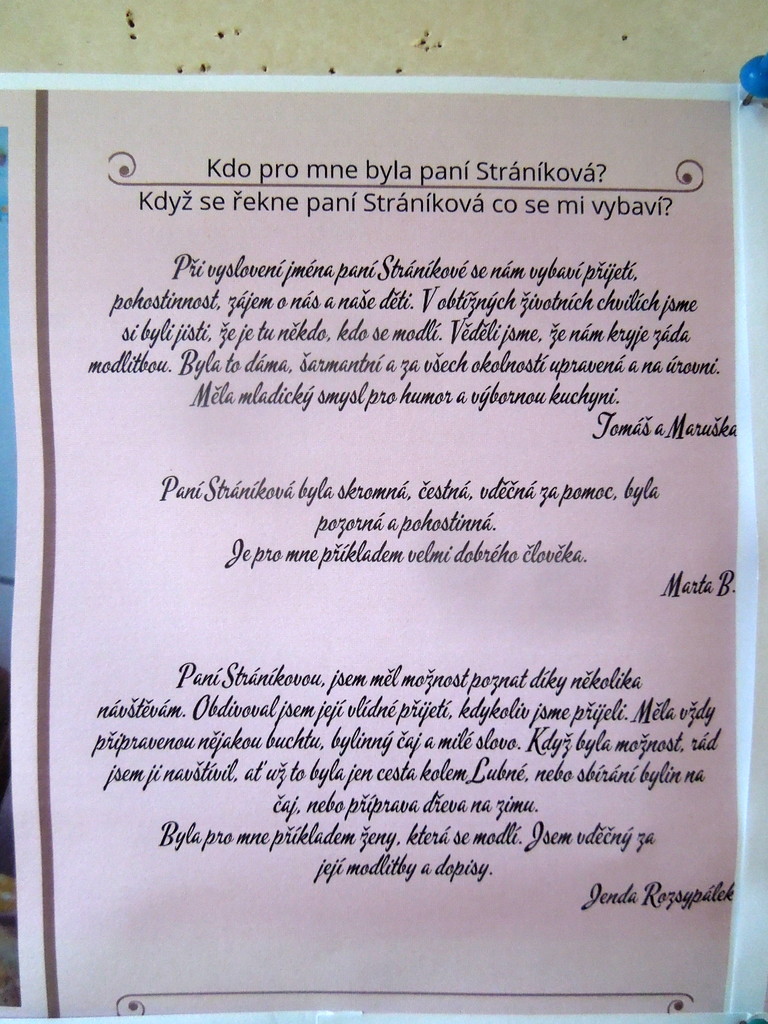 Kdo pro mne byla paní Stráníková?
Když se řekne paní Stráníková co se mi vybaví?
Při vyslovení jména paní Stráníkové se nám vybaví přijetí,
pohostinnost, zájem o nás a naše děti. V obtížných životních chvílích jsme
si byli jisti, že je tu někdo, kdo se modlí. Věděli jsme, že nám kryje záda
modlitbou. Byla to dáma, šarmantní a za všech okolností upravená a na úrovni.
Měla mladický smysl pro humor a výbornou kuchyni.
Tomáš a Maruška
Paní Stráníková byla skromná, čestná, vděčná za pomoc, byla
pozorná a pohostinná.
Je pro mne příkladem velmi dobrého člověka.
Marta B.
Paní Stráníkovou, jsem měl možnost poznat díky několika
návštěvám. Obdivoval jsem její vlídné přijetí, kdykoliv jsme přijeli. Měla vždy
připravenou nějakou buchtu, bylinný čaj a milé slovo. Když byla možnost, rád
jsem ji navštívil, ať už to byla jen cesta kolem Lubné, nebo sbírání bylin na
čaj, nebo příprava dřeva na zimu.
Byla pro mne příkladem ženy, která se modlí. Jsem vděčný za
její modlitby a dopisy.
Jenda Rozsypálek